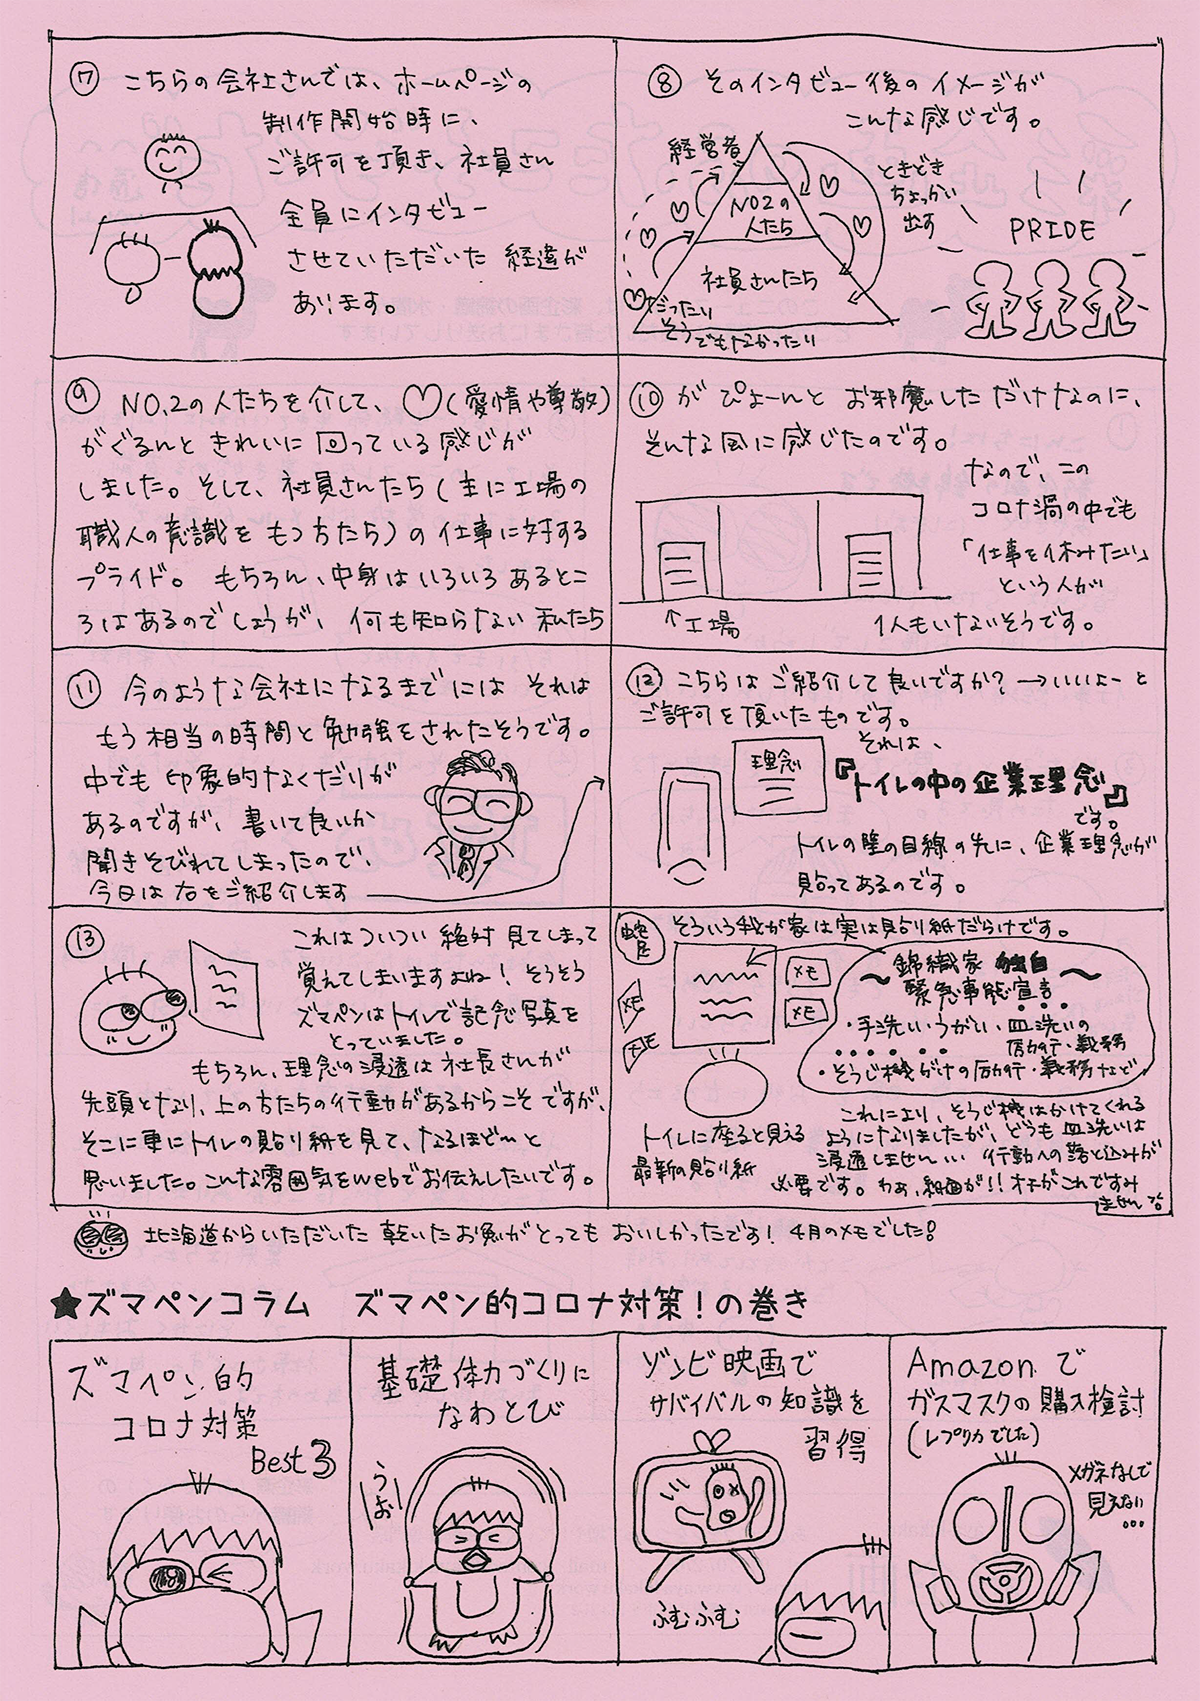 ⑦ こちらの会社さんでは、ホームページの
制作開始時に、
ご許可を頂き、社員さん
全員にインタビュー
させていただいた経違が
あります。
⑧ そのインタビュー後のイメージが
こんな感じです。
経営者
NO2の
人たち
社員さんたち
だったり
そうでもなかったり
ときどき
ちょっかい
出す
PRIDE
⑨ NO.2の人たちを介して、♡(愛情や尊敬)
がぐるんときれいに回っている感じが
しました。そして、社員さんたち(主に工場の
職人の意識をもつ方たち)の仕事に対する
プライド。もちろん、中身はいろいろあるとこ
ろはあるのでしょうが、何も知らない私たち
⑩ がぴょーんとお邪魔しただけなのに、
そんな風に感じたのです。
なので、この
コロナ渦の中でも
「仕事を休みたい」
という人が
1人もいないそうです。
↑工場
⑪ 今のような会社になるまでにはそれは
もう相当の時間と勉強をされたそうです。
中でも印象的なくだりが
あるのですが、書いて良いか
聞きそびれてしまったので、
今日は右をご紹介します
⑫ こちらはご紹介して良いですか?→いいよーと
ご許可を頂いたものです。
それは、
理念
『トイレの中の企業理念』
です。
トイレの壁の目線の先に、企業理念が
貼ってあるのです。
⑬ これはついつい絶対見てしまって
覚えてしまいますよね!そうそう
ズマペンはトイレで記念写真を
とっていました。
もちろん、理念の浸透は社長さんが
先頭となり、上の方たちの行動があるからこそですが、
そこに更にトイレの貼り紙を見て、なるほど〜と
思いました。こんな雰囲気をwebでお伝えしたいです。
蛇足
そういう我が家は実は貼り紙だらけです。
メモ
メモ
メモ
メモ
〜錦織家 独自〜
緊急事態宣言
・手洗い・うがい・皿洗いの
励行・義務
・そうじ機がけの励行・義務など
トイレに座ると見える
最新の貼り紙
これにより、そうじ機はかけてくれる
ようになりましたが、どうも皿洗いは
浸透しません… 行動への落と込みが
必要です。わぁ、紙面が!!オチがこれですみ
ません
北海道からいただいた乾いたお魚がとってもおいしかったです!4月のメモでした。
★ズマペンコラム ズマペン的コロナ対策!の巻き
ズマペン的
コロナ対策
Best3
基礎体力づくりに
なわとび
うおー
ゾンビ映画で
サバイバルの知識を
習得
ふむふむ
Amazonで
ガスマスクの購入検討
(レプリカでした)
メガネなしで
見えない
…